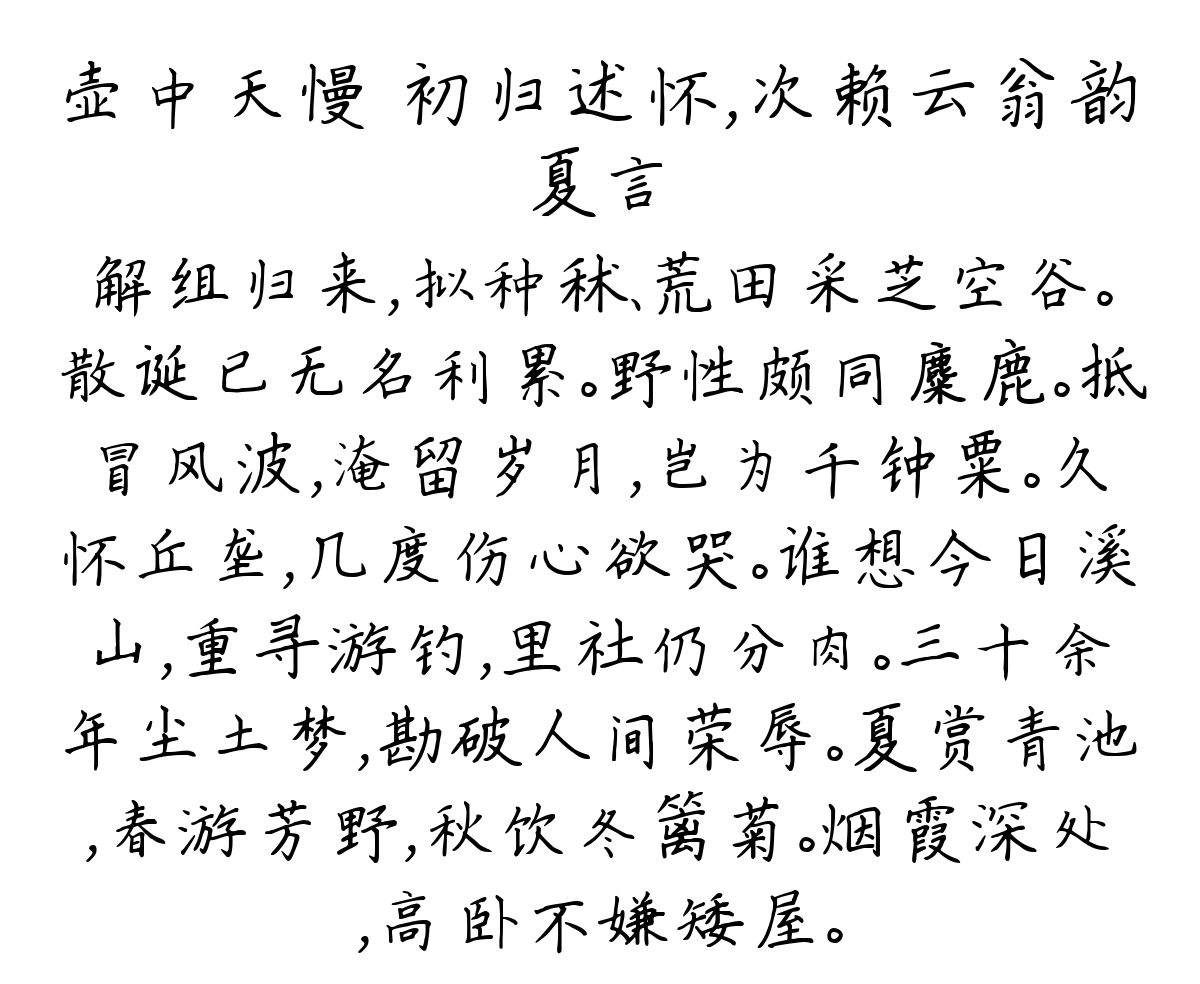 壶中天慢 初归述怀,次赖云翁韵
夏言
解组归来,拟种秫、荒田采芝空谷。
散诞已无名利累。野性颇同麋鹿。抵
冒风波,淹留岁月,岂为千钟粟。久
怀丘垄,几度伤心欲哭。谁想今日溪
山,重寻游钓,里社仍分肉。三十余
年尘土梦,勘破人间荣辱。夏赏青池
,春游芳野,秋饮冬篱菊。烟霞深处
,高卧不嫌矮屋。